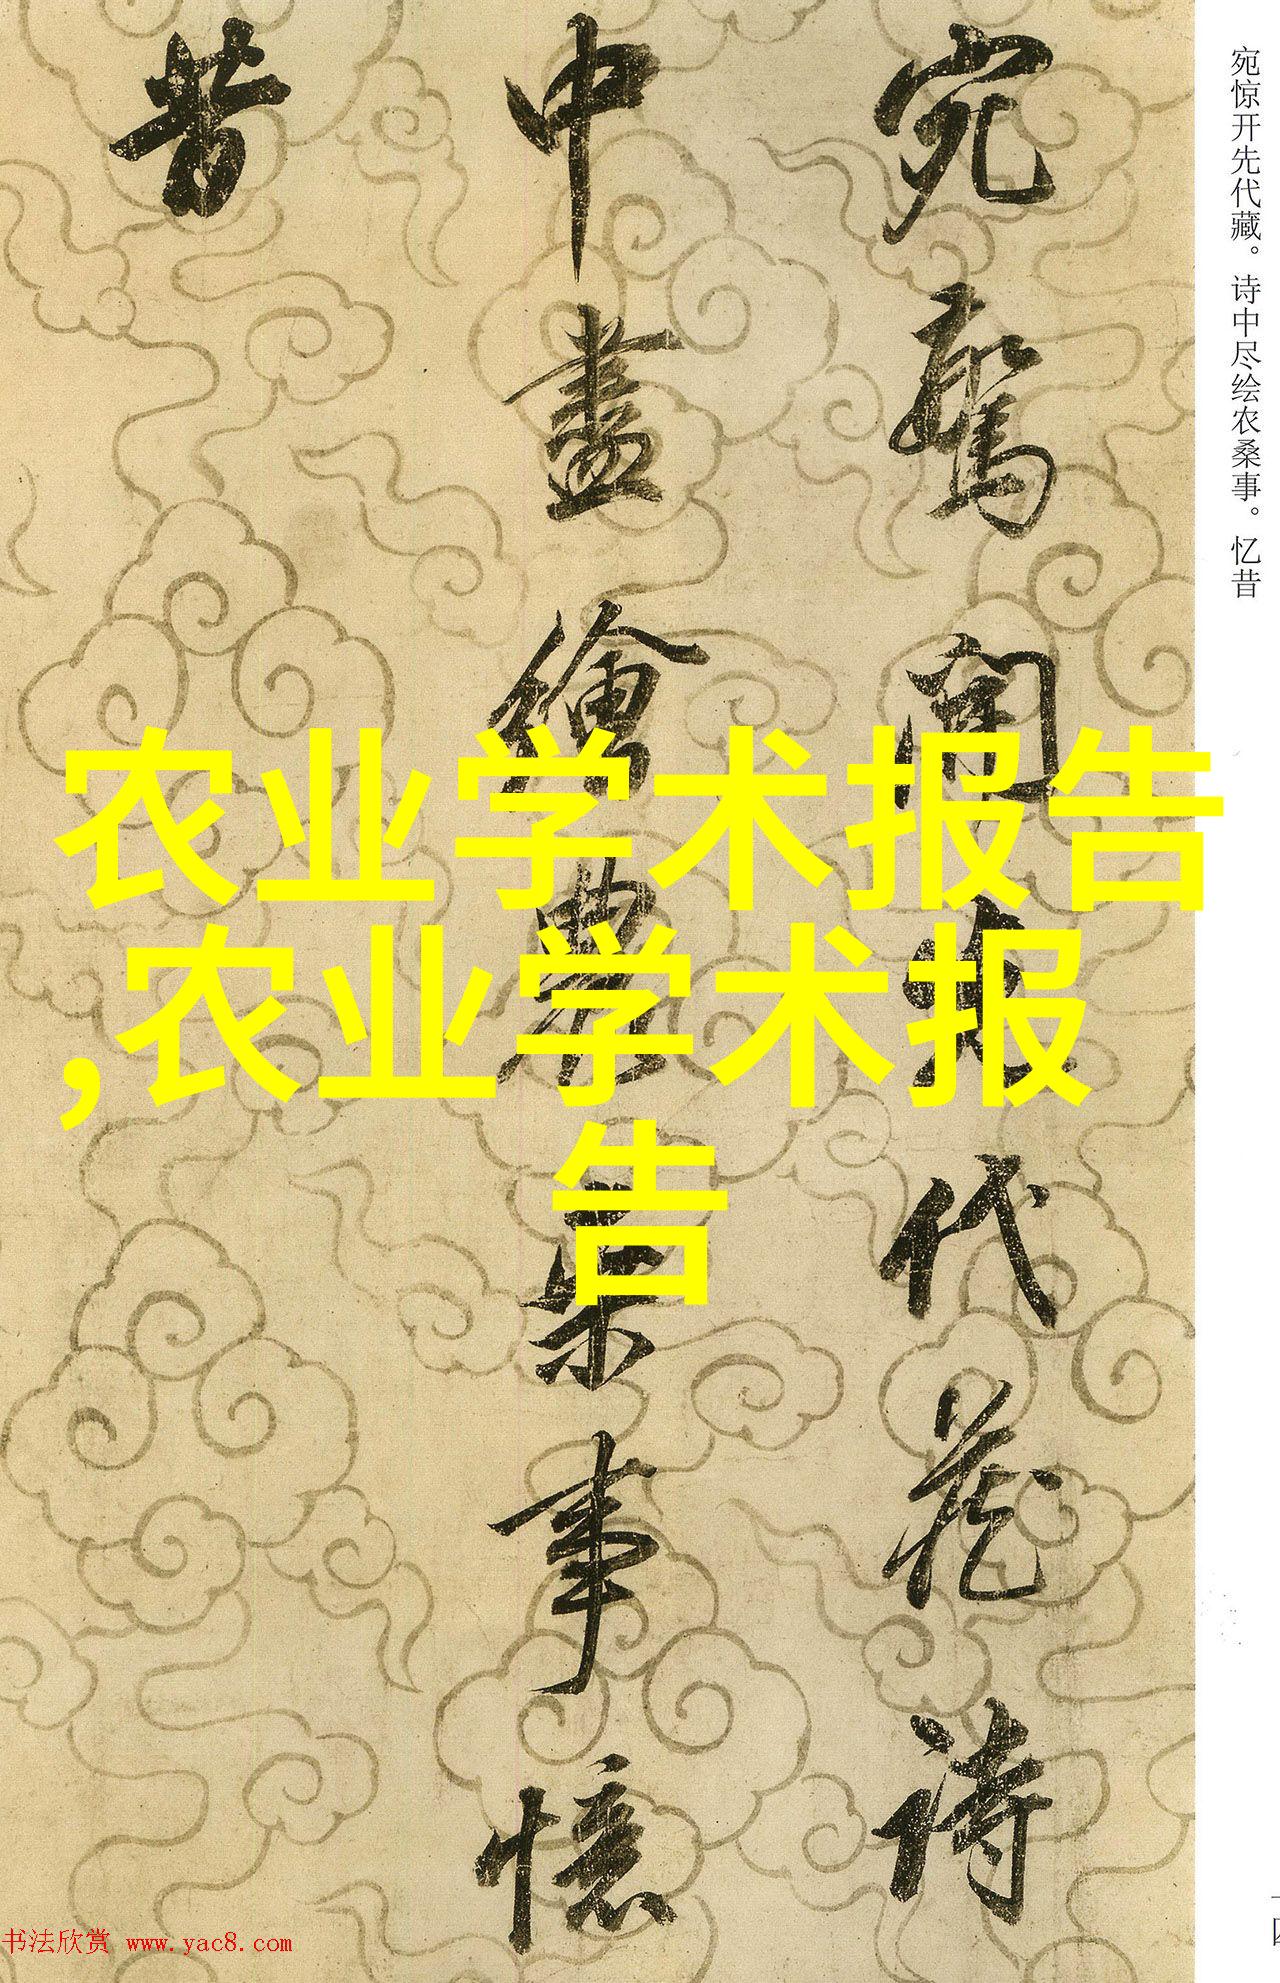 宛惊开先代藏。诗中尽绘农桑事。忆昔
宛驚開先代藏詩
中盡繪農桑事憶
昔
农业学术报告
,农业学术报
告
书法欣赏 www.yac8.com